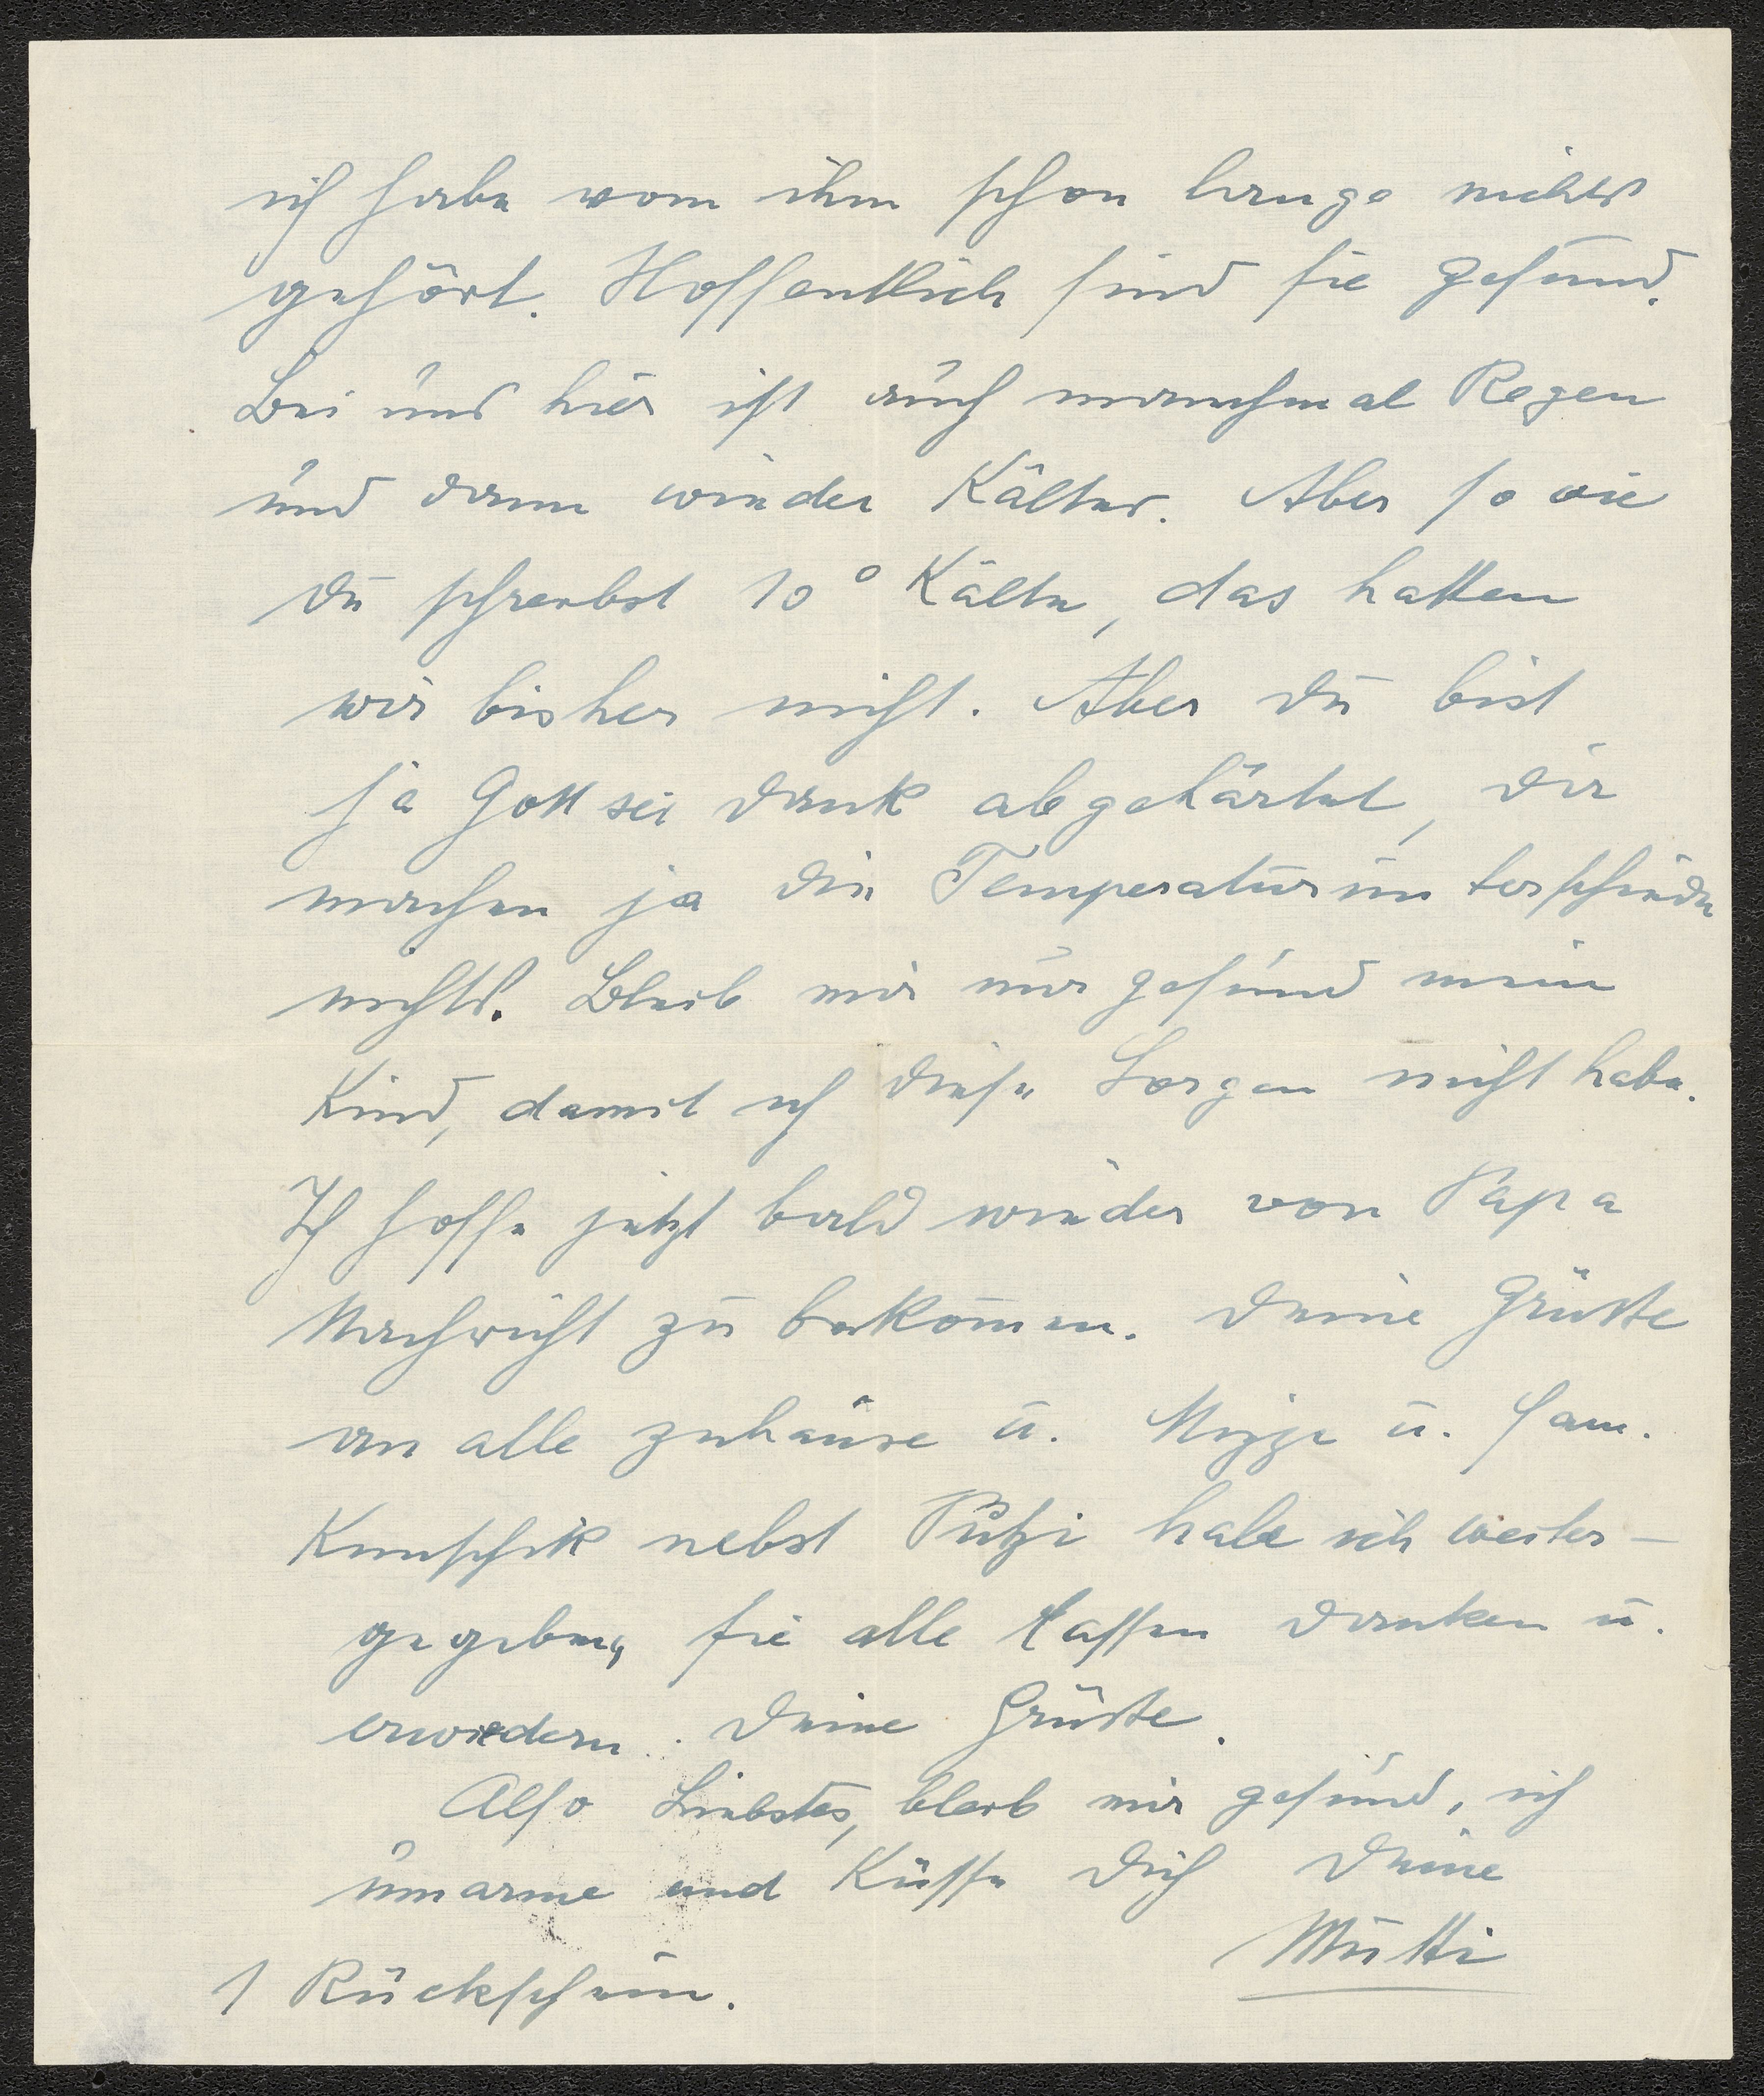 ich habe vom ihm schon lange nichts
gehört. Hoffentlich sind sie gesund.
Bei uns hier ist auch manchmal Regen
und dann wieder Kälter. Aber so wie
Du schreibst 10° Kälte, das hatten
wir bisher nicht. Aber Du bist
ja Gott sei Dank abgehärtet, Dir
machen ja die Temperaturunterschiede
nichts. Bleib mir nur gesund mein
Kind, damit ich diese Sorgen nicht habe.
Ich hoffe jetzt bald wieder von Papa
Nachricht zu bekom̄en. Deine Grüsse
an alle zuhause u. Mizze u. Fam.
nebst Putzi habe ich weiter-
gegeben, sie alle lassen danken u.
erwiedern Deine Grüsse.
Also Liebstes, bleib mir gesund, ich
umarme und Küsse Dich Deine
Mutti
1 Rückschein.